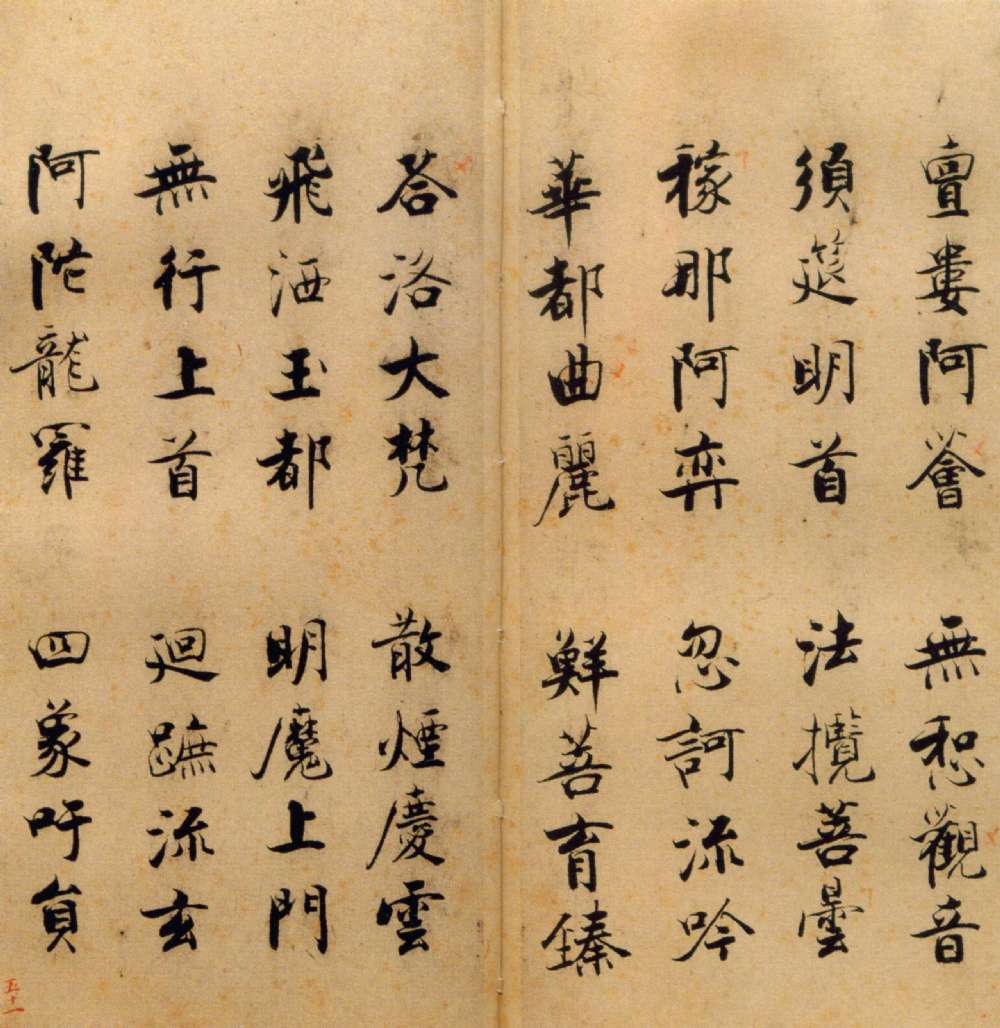 亶婁阿薈 無惒觀音
須筵明首 法攬菩曇
稼那阿弈 忽訶流吟
華都曲麗 鮮菩育臻
荅洛大梵 散煙慶雲
飛洒玉都 明魔上門
無行上首 廻蹠流玄
阿陀龍羅 四象吁員
五十一